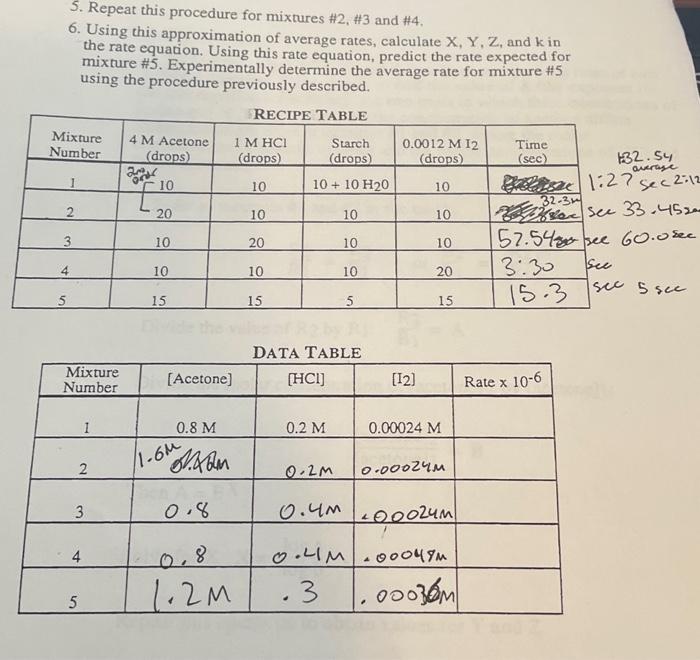 5. Repeat this procedure for mixtures #2, #3 and #4.
6. Using this approximation of average rates, calculate X, Y, Z, and k in
the rate equation. Using this rate equation, predict the rate expected for
mixture #5. Experimentally determine the average rate for mixture #5
using the procedure previously described.
RECIPE TABLE
Mixture Number 4 M Acetone (drops) 1 M HCl (drops) Starch (drops) 0.0012 M I2 (drops) Time (sec)
32.54
average
1 10 10 10 + 10 H20 10 1:27 sec
2 20 10 10 10 sec 33.45
3 10 20 10 10 57.54 sec 60.0 sec
4 10 10 10 20 3:30 sec
5 15 15 5 15 15.3 sec 5 sec
Divide the value of R2 by R1
DATA TABLE
Mixture Number [Acetone] [HCl] [I2] Rate x 10-6
1 0.8 M 0.2 M 0.00024 M
2 1.6M 0.2M 0.00024M
3 0.8 0.4M .00024M
4 0.8 0.4M .00048M
5 1.2M .3 .00036M